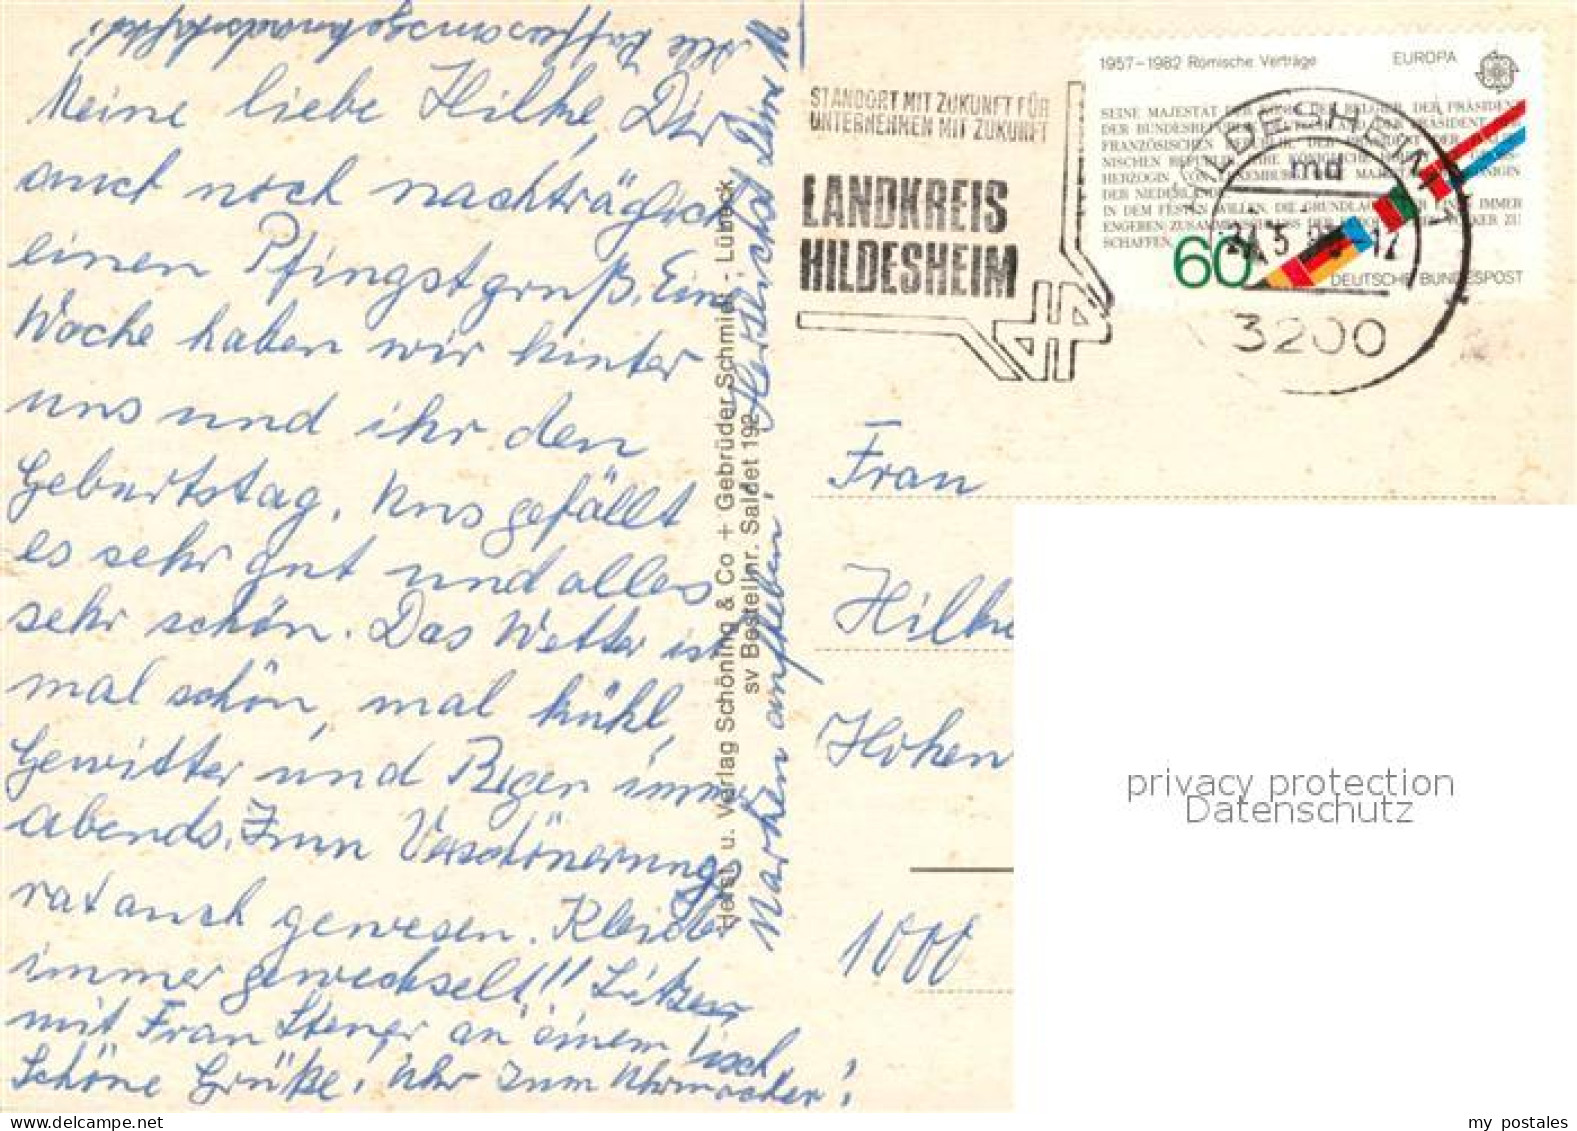 Meine liebe Hilke, Dir
auch noch nachträglich
einen Pfingstgruß. Eine
Woche haben wir hinter
uns und ihr den
Geburtstag. Uns gefällt
es sehr gut und alles
sehr schön. Das Wetter ist
mal schön, mal kühl,
Gewitter und Regen immer
abends. Zum Verschönerungs
rat auch gewesen. Kleider
immer gewechselt!! Sitzen
mit Frau an einem Tisch
Schöne Grüße! Uhr zum Uhrmacher!
Marken aufheben! Herzlichst Deine
Herst. u. Verlag Schöning & Co + Gebrüder Schmidt - Lübeck
sv Bestellnr. Saldet 192
STANDORT MIT ZUKUNFT FÜR
UNTERNEHMEN MIT ZUKUNFT
LANDKREIS
HILDESHEIM
1957-1982 Römische Verträge EUROPA
SEINE MAJESTÄT DER KÖNIG DER BELGIER, DER PRÄSIDENT
DER BUNDESREPUBLIK
FRANZÖSISCHEN REPUBLIK, DER
NISCHEN REPUBLIK, IHRE KÖNIGLICHE
HERZOGIN VON LUXEMBURG, IHRE MAJESTÄT DIE KÖNIGIN
DER NIEDERLANDE
IN DEM FESTEN WILLEN, DIE GRUNDLAGEN FÜR EINEN IMMER
ENGEREN ZUSAMMENSCHLUSS DER EUROPÄISCHEN VÖLKER ZU
SCHAFFEN,
60
DEUTSCHE BUNDESPOST
HILDESHEIM 1
md
3200
Frau
Hilke
Hohen
1000
privacy protection
Datenschutz
my postales